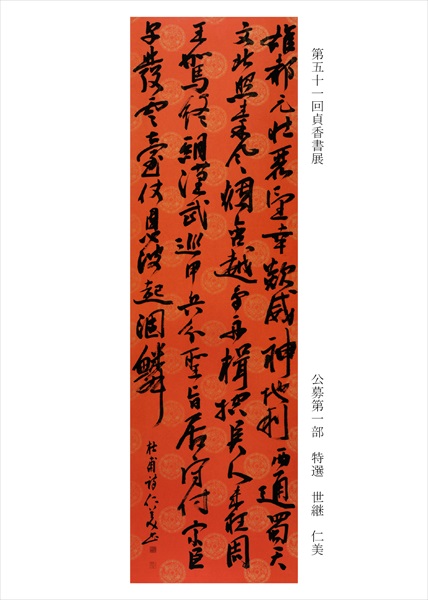 第五十一回貞香書展
公募第一部　特選　世継　仁美
雄都元壮麗望幸歘威神地利西通蜀天
文北照秦風烟含越鳥舟楫控呉人未枉周
王駕終期漢武巡甲兵分聖旨居守付宗臣
早發雲臺仗恩波起涸鱗
杜甫詩仁美書